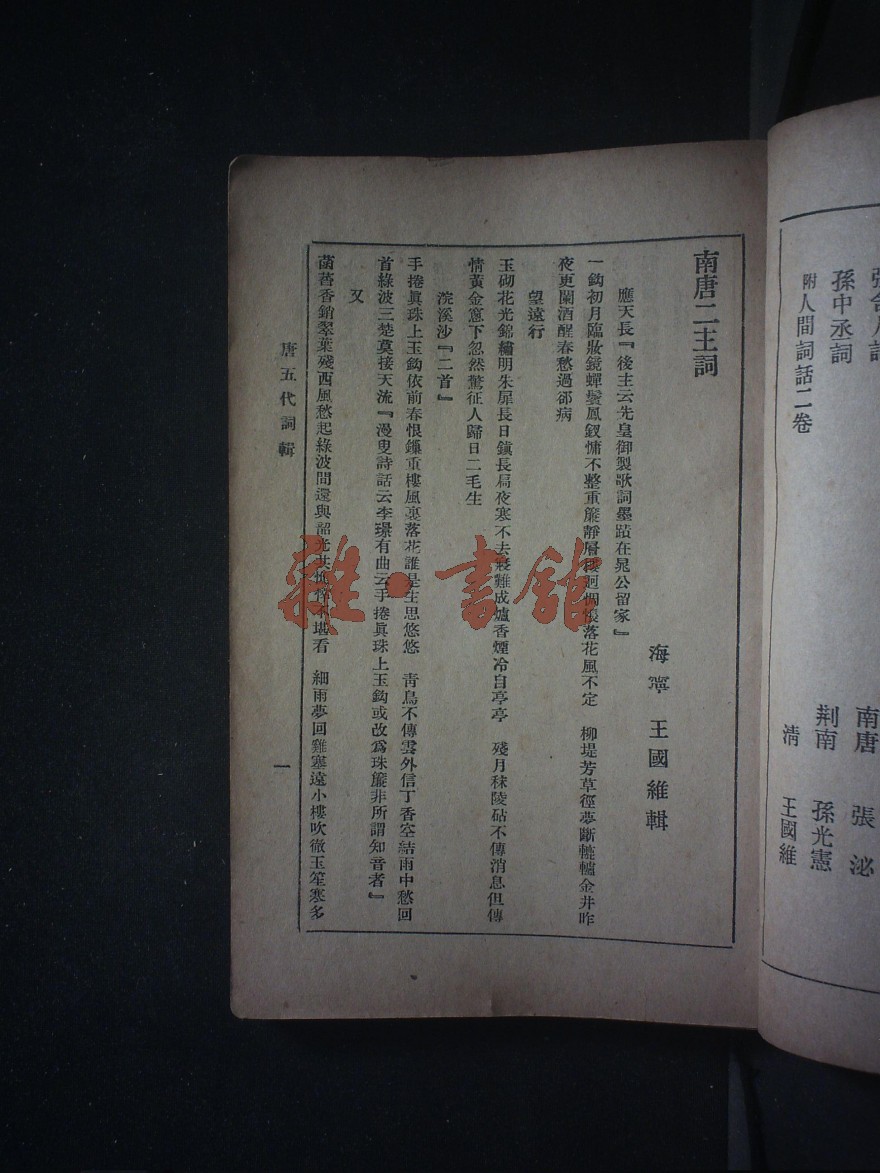 南唐二主詞
海寧 王國維輯
應天長『後主云先皇御製歌詞墨蹟在晁公留家』
一鈎初月臨妝鏡蟬鬢鳳釵慵不整重簾靜層樓迥惆悵落花風不定　柳堤芳草徑夢斷轆轤金井昨
夜更闌酒醒春愁過郤病
望遠行
玉砌花光錦繡明朱扉長日鎮長扃夜寒不去寢難成爐香煙冷自亭亭　殘月秣陵砧不傳消息但傳
情黃金窻下忽然驚征人歸日二毛生
浣溪沙『二首』
手捲眞珠上玉鈎依前春恨鎖重樓風裏落花誰是主思悠悠　靑鳥不傳雲外信丁香空結雨中愁回
首綠波三楚莫接天流『漫叟詩話云李璟有曲云手捲眞珠上玉鈎或改爲珠簾非所謂知音者』
又
菡萏香銷翠葉殘西風愁起綠波間還與韶光共憔悴不堪看　細雨夢回雞塞遠小樓吹徹玉笙寒多
唐五代詞輯
一
孫中丞詞
附人間詞話二卷
南唐 張泌
荆南 孫光憲
淸 王國維
雜·書館